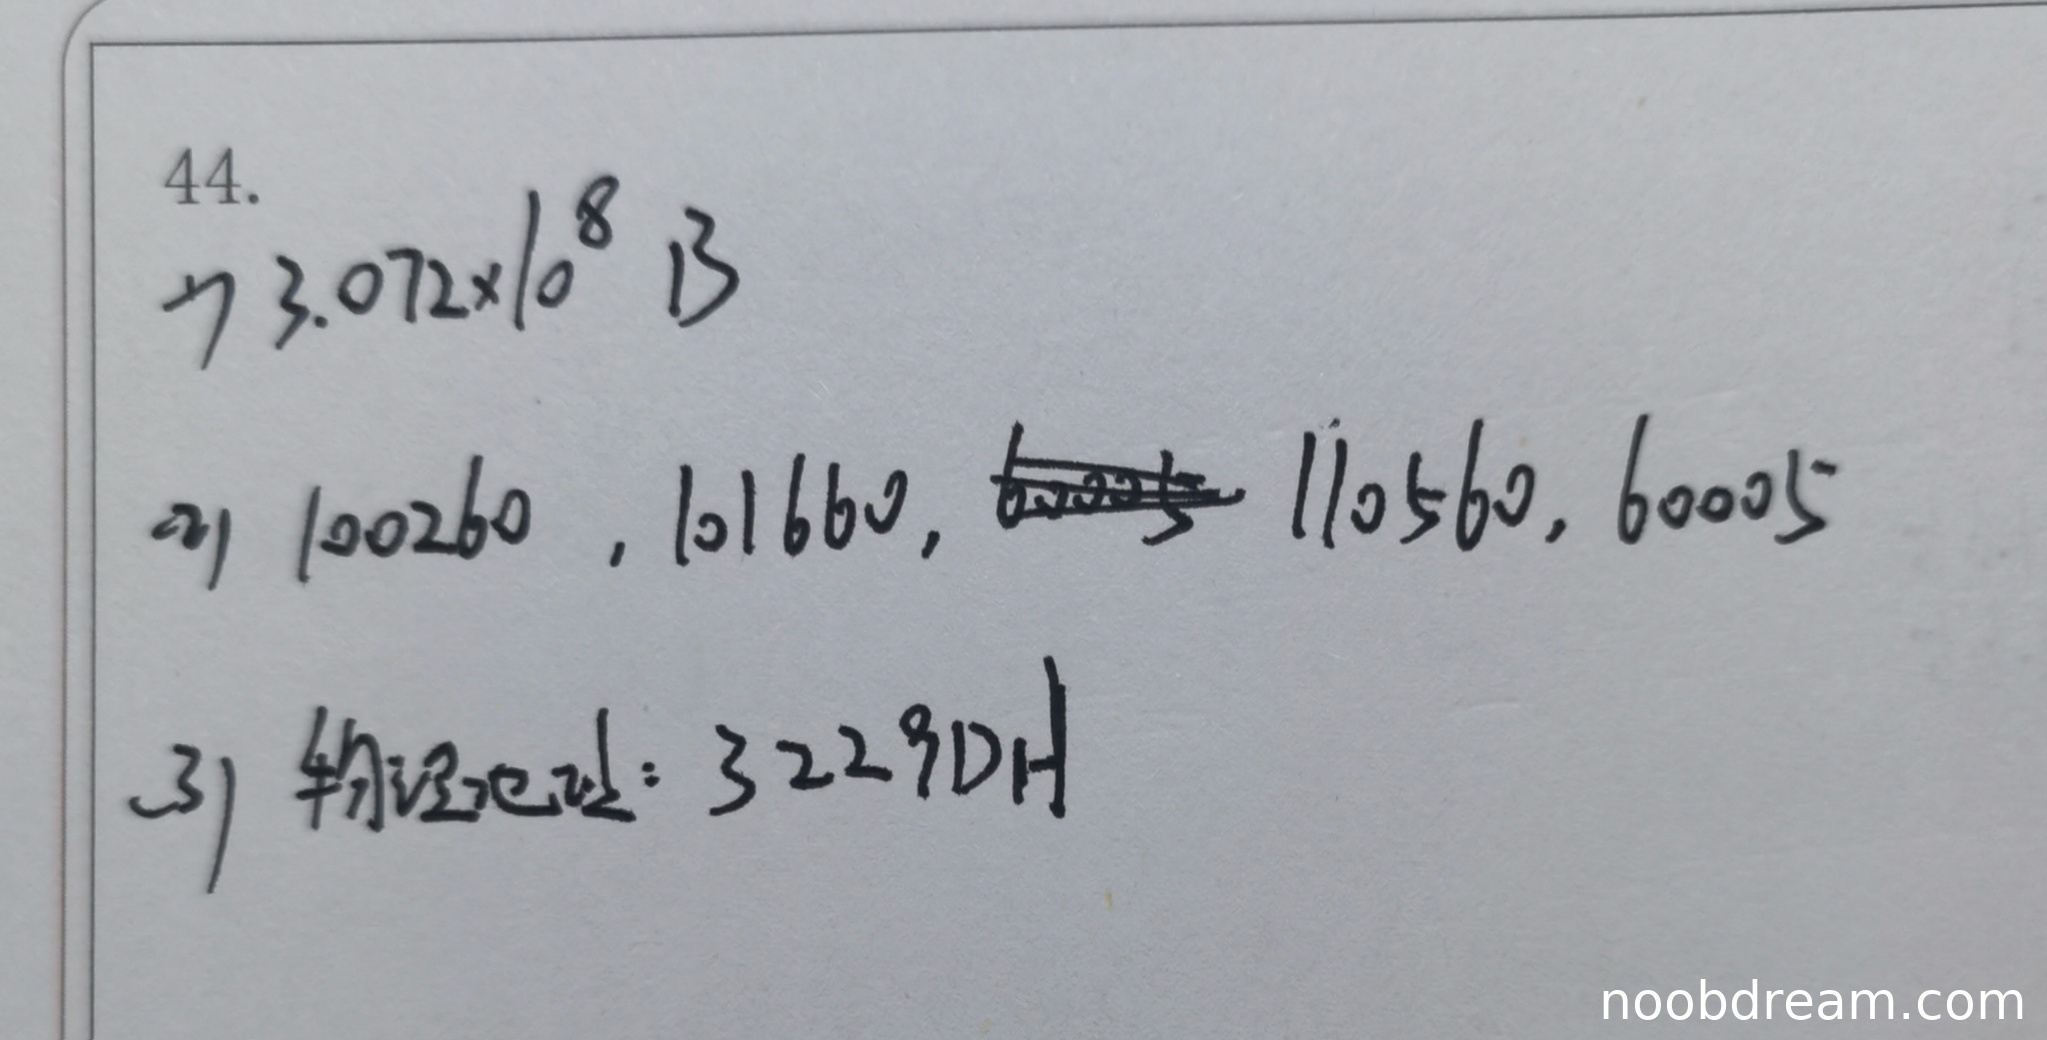 44.
1) 3.072×10⁸ B
2) 100260 , 101660, 110560, 60005
3) 物理地址: 3229DH
noobdream.com